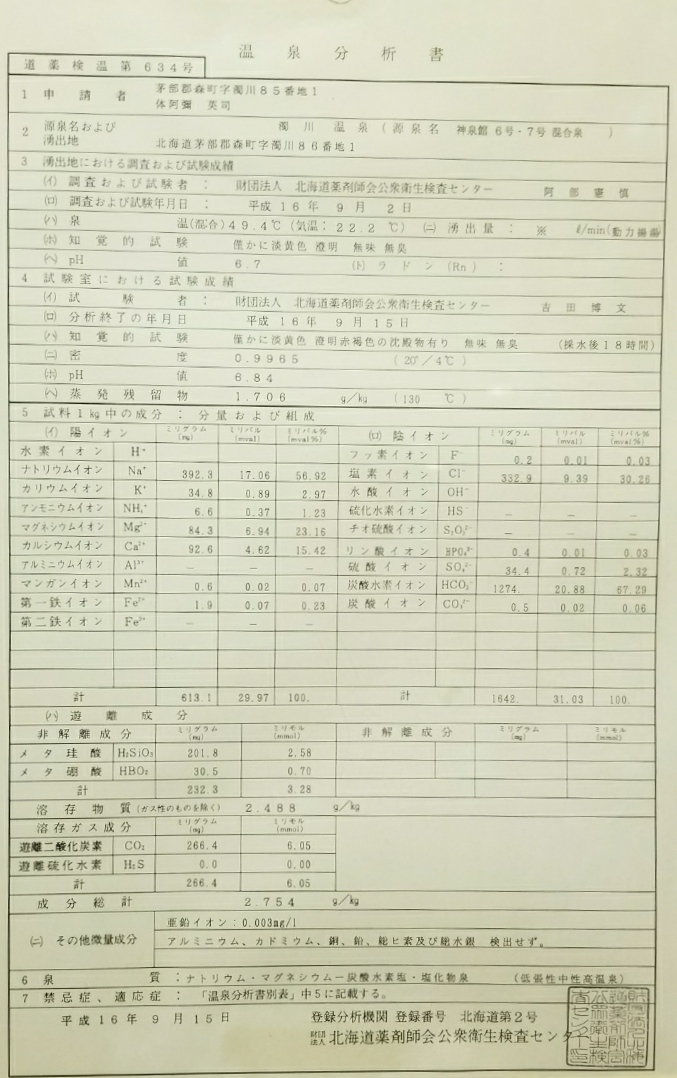 温泉分析書
道薬検温第634号
1 申請者 茅部郡森町字濁川85番地1
体阿彌 英司
2 源泉名および湧出地 濁川温泉(源泉名 神泉館6号・7号混合泉)
北海道茅部郡森町字濁川86番地1
3 湧出地における調査および試験成績
(イ) 調査および試験者: 財団法人 北海道薬剤師会公衆衛生検査センター 阿部憲慎
(ロ) 調査および試験年月日: 平成16年9月2日
(ハ) 泉温(混合)49.4℃(気温:22.2℃) (ニ) 湧出量: ※ ℓ/min(動力揚湯
(ホ) 知覚的試験 僅かに淡黄色 澄明 無味 無臭
(ヘ) pH値 6.7 (ト) ラドン(Rn):
4 試験室における試験成績
(イ) 試験者: 財団法人 北海道薬剤師会公衆衛生検査センター 吉田博文
(ロ) 分析終了の年月日 平成16年9月15日
(ハ) 知覚的試験 僅かに淡黄色 澄明赤褐色の沈殿物有り 無味 無臭 (採水後18時間)
(ニ) 密度 0.9965 (20°/4℃)
(ホ) pH値 6.84
(ヘ) 蒸発残留物 1.706 g/kg (130℃)
5 試料1kg中の成分: 分量および組成
(イ) 陽イオン ミリグラム(mg) ミリバル(mval) ミリバル%(mval%) (ロ) 陰イオン ミリグラム(mg) ミリバル(mval) ミリバル%(mval%)
水素イオン H⁺ フッ素イオン F⁻ 0.2 0.01 0.03
ナトリウムイオン Na⁺ 392.3 17.06 56.92 塩素イオン Cl⁻ 332.9 9.39 30.26
カリウムイオン K⁺ 34.8 0.89 2.97 水酸イオン OH⁻
アンモニウムイオン NH₄⁺ 6.6 0.37 1.23 硫化水素イオン HS⁻ － － －
マグネシウムイオン Mg²⁺ 84.3 6.94 23.16 チオ硫酸イオン S₂O₃²⁻ － － －
カルシウムイオン Ca²⁺ 92.6 4.62 15.42 リン酸イオン HPO₄²⁻ 0.4 0.01 0.03
アルミニウムイオン Al³⁺ － － － 硫酸イオン SO₄²⁻ 34.4 0.72 2.32
マンガンイオン Mn²⁺ 0.6 0.02 0.07 炭酸水素イオン HCO₃⁻ 1274. 20.88 67.29
第一鉄イオン Fe²⁺ 1.9 0.07 0.23 炭酸イオン CO₃²⁻ 0.5 0.02 0.06
第二鉄イオン Fe³⁺ － － －
計 613.1 29.97 100. 計 1642. 31.03 100.
(ハ) 遊離成分
非解離成分 ミリグラム(mg) ミリモル(mmol) 非解離成分 ミリグラム(mg) ミリモル(mmol)
メタ珪酸 H₂SiO₃ 201.8 2.58
メタ硼酸 HBO₂ 30.5 0.70
計 232.3 3.28
溶存物質(ガス性のものを除く) 2.488 g/kg
溶存ガス成分 ミリグラム(mg) ミリモル(mmol)
遊離二酸化炭素 CO₂ 266.4 6.05
遊離硫化水素 H₂S 0.0 0.00
計 266.4 6.05
成分総計 2.754 g/kg
(ニ) その他微量成分 亜鉛イオン:0.003mg/l
アルミニウム、カドミウム、銅、鉛、総ヒ素及び総水銀 検出せず。
6 泉質:ナトリウム・マグネシウム－炭酸水素塩・塩化物泉 (低張性中性高温泉)
7 禁忌症、適応症: 「温泉分析書別表」中5に記載する。
平成16年9月15日 登録分析機関 登録番号 北海道第2号
財団法人 北海道薬剤師会公衆衛生検査センター